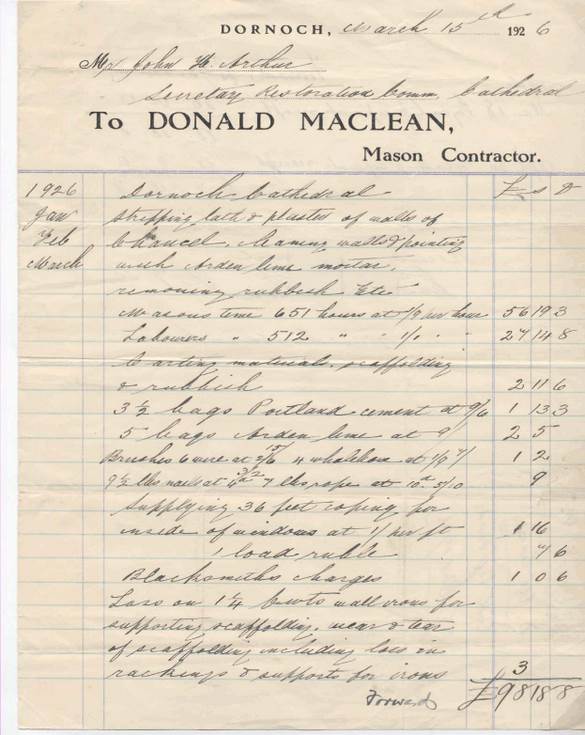 DORNOCH, March 15th 1926
Mr John H. Arthur
Secretary Restoration Comm. Cathedral
To DONALD MACLEAN,
Mason Contractor.
1926 Dornoch Cathedral £ s d
Jan Stripping lath & plaster of walls of
Feb Chancel, cleaning walls & pointing
March with Arden lime mortar,
removing rubbish Etc
Masons time 651 hours at 1/9 per hour 56 19 3
Labourers " 512 " " 1/1 " " 27 14 8
Carting materials, scaffolding
& rubbish 2 11 6
3 ½ bags Portland cement at 9/6 1 13 3
5 bags Arden lime at 9/ 2 5
Brushes 6 wire at 2/6 15/ 4 whalebone at 1/9 7/ 1 2
9 ½ lbs nails at 4d 3/2 7 lbs rope at 10d 5/10 9
Supplying 36 feet coping for
inside of windows at 1/ per ft 1 16
1 load ruble 7 6
Blacksmiths charges 1 0 6
Loss on 1 ¼ Cwts wall irons for
supporting scaffolding, wear & tear
of scaffolding including loss in
rackings & supports for irons 3
Forward £98 18 8